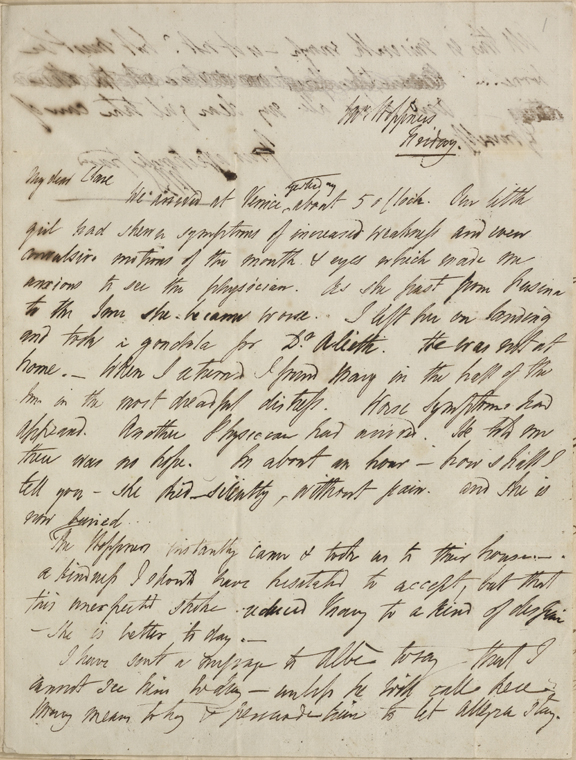 1
Mr. Hoppners
Friday.
My dear Clare
We arrived at Venice yesterday about 5 o clock. Our little
girl had shewn symptoms of increased weakness and even
convulsive motions of the mouth & eyes which made me
anxious to see the physician. As she past from Fusina
to the Inn she became worse. I left her on landing
and took a gondola for Dr Alietti. He was not at
home.— When I returned I found Mary in the hall of the
Inn in the most dreadful distress. Worse symptoms had
appeared. Another Physician had arrived. He told me
there was no hope. In about an hour – how shall I
tell you – she died – silently, without pain. and she is
now buried.
The Hoppners instantly came & took us to their house —.
a kindness I should have hesitated to accept, but that
this unexpected stroke reduced Mary to a kind of despair
– she is better to day.—
I have sent a message to Albe to say that I
cannot see him to day – unless he will call here –
Mary means to try & persuade him to let Allegra stay.